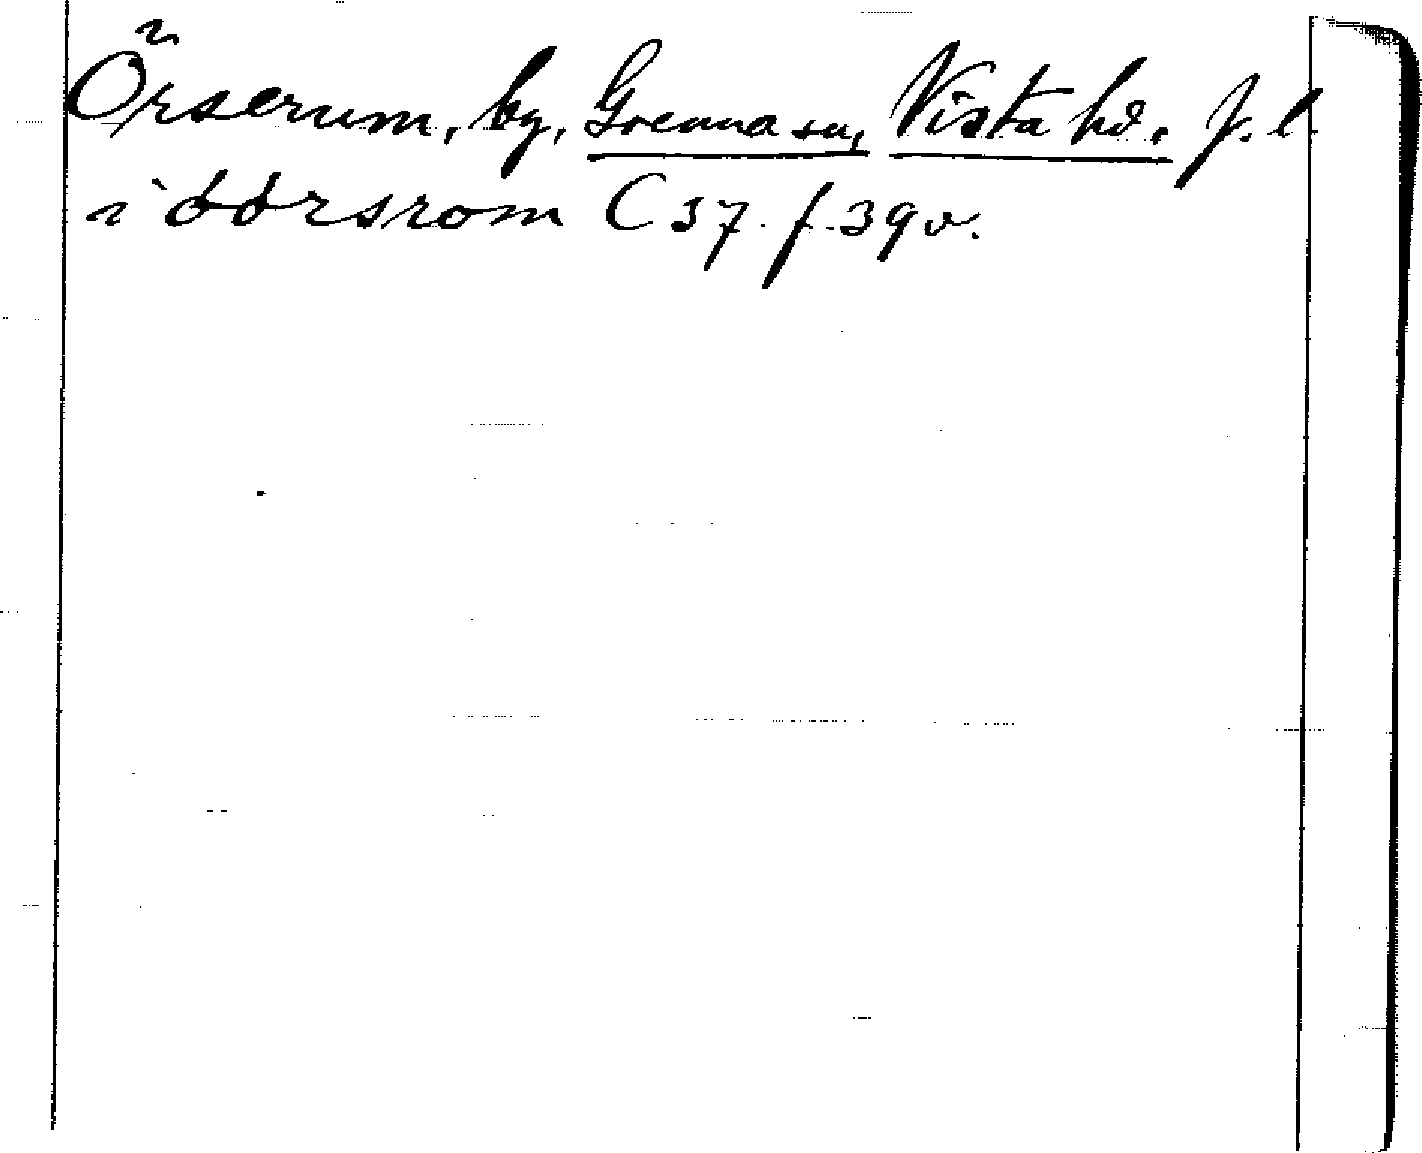 Örserum, by, Grenna sn, Vista hd. J. l.
i óórsrom C 37 f. 39 v.